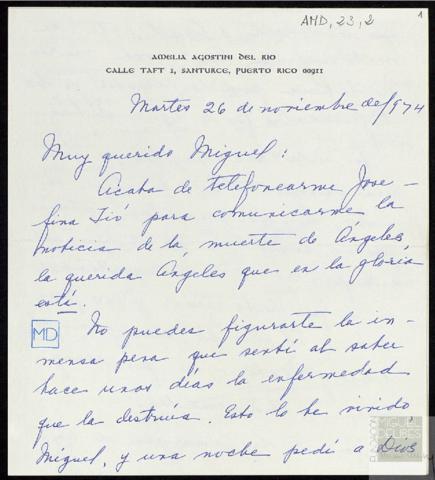 AMD, 23, 2
1
AMELIA AGOSTINI DEL RIO
CALLE TAFT 1, SANTURCE, PUERTO RICO 00911
Martes 26 de noviembre de 1974
Muy querido Miguel:
Acaba de telefonearme Jose-
fina Tió para comunicarme la
noticia de la muerte de Ángeles,
la querida Ángeles que en la gloria
está.
MD
No puedes figurarte la in-
mensa pena que sentí al saber
hace unos días la enfermedad
que la destruía. Esto lo he vivido,
Miguel, y una noche pedí a Dios
FUNDACIÓN
MIGUEL
DELIBES